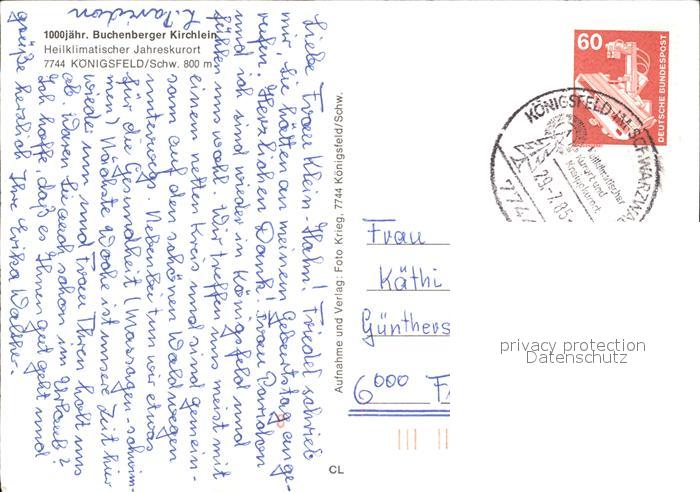 1000jähr. Buchenberger Kirchlein
Heilklimatischer Jahreskurort
7744 KÖNIGSFELD/Schw. 800 m
Liebe Frau Klein-Hahn! Friedel schrieb
mir, Sie hätten an meinem Geburtstag ange-
rufen. Herzlichen Dank! Frau
und ich sind wieder in Königsfeld und
fühlen uns wohl. Wir treffen uns meist mit
einem netten Kreis und sind gemein-
sam auf den schönen Waldwegen
unterwegs. Nebenbei tun wir etwas
für die Gesundheit (Massagen - schwim-
men) Nächste Woche ist unsere Zeit hier
wieder um und Frau Ihren holt uns
ab. Waren Sie auch schon im Urlaub?
Ich hoffe, daß es Ihnen gut geht und
grüße herzlich Ihre Erika
Aufnahme und Verlag: Foto Krieg, 7744 Königsfeld/Schw.
CL
60
DEUTSCHE BUNDESPOST
KÖNIGSFELD IM SCHWARZWA
7744
29.-7.85-
Heilklimatischer
Kurort und
Kneippkurort
Frau
Käthi
Günthers
6000 F
privacy protection
Datenschutz